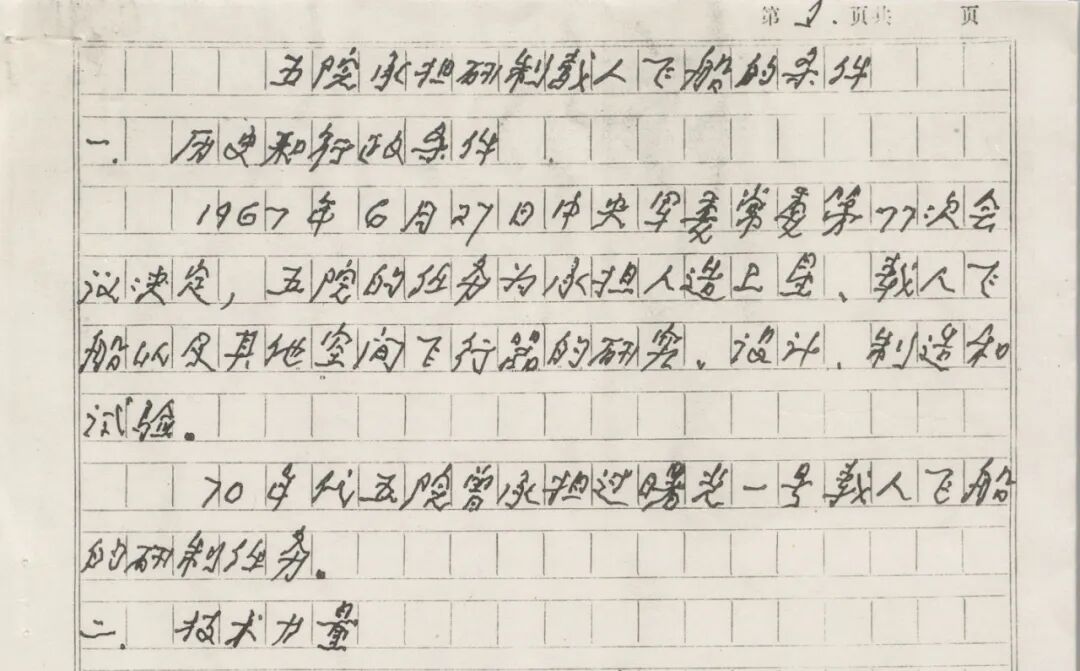 第1.页共 页
五院承担研制载人飞船的条件
一. 历史和行政条件
1967年6月27日中央军委常委第77次会
议决定, 五院的任务为承担人造卫星、载人飞
船以及其他空间飞行器的研究、设计、制造和
试验.
70年代五院曾承担过曙光一号载人飞船
的研制任务.
二. 技术力量